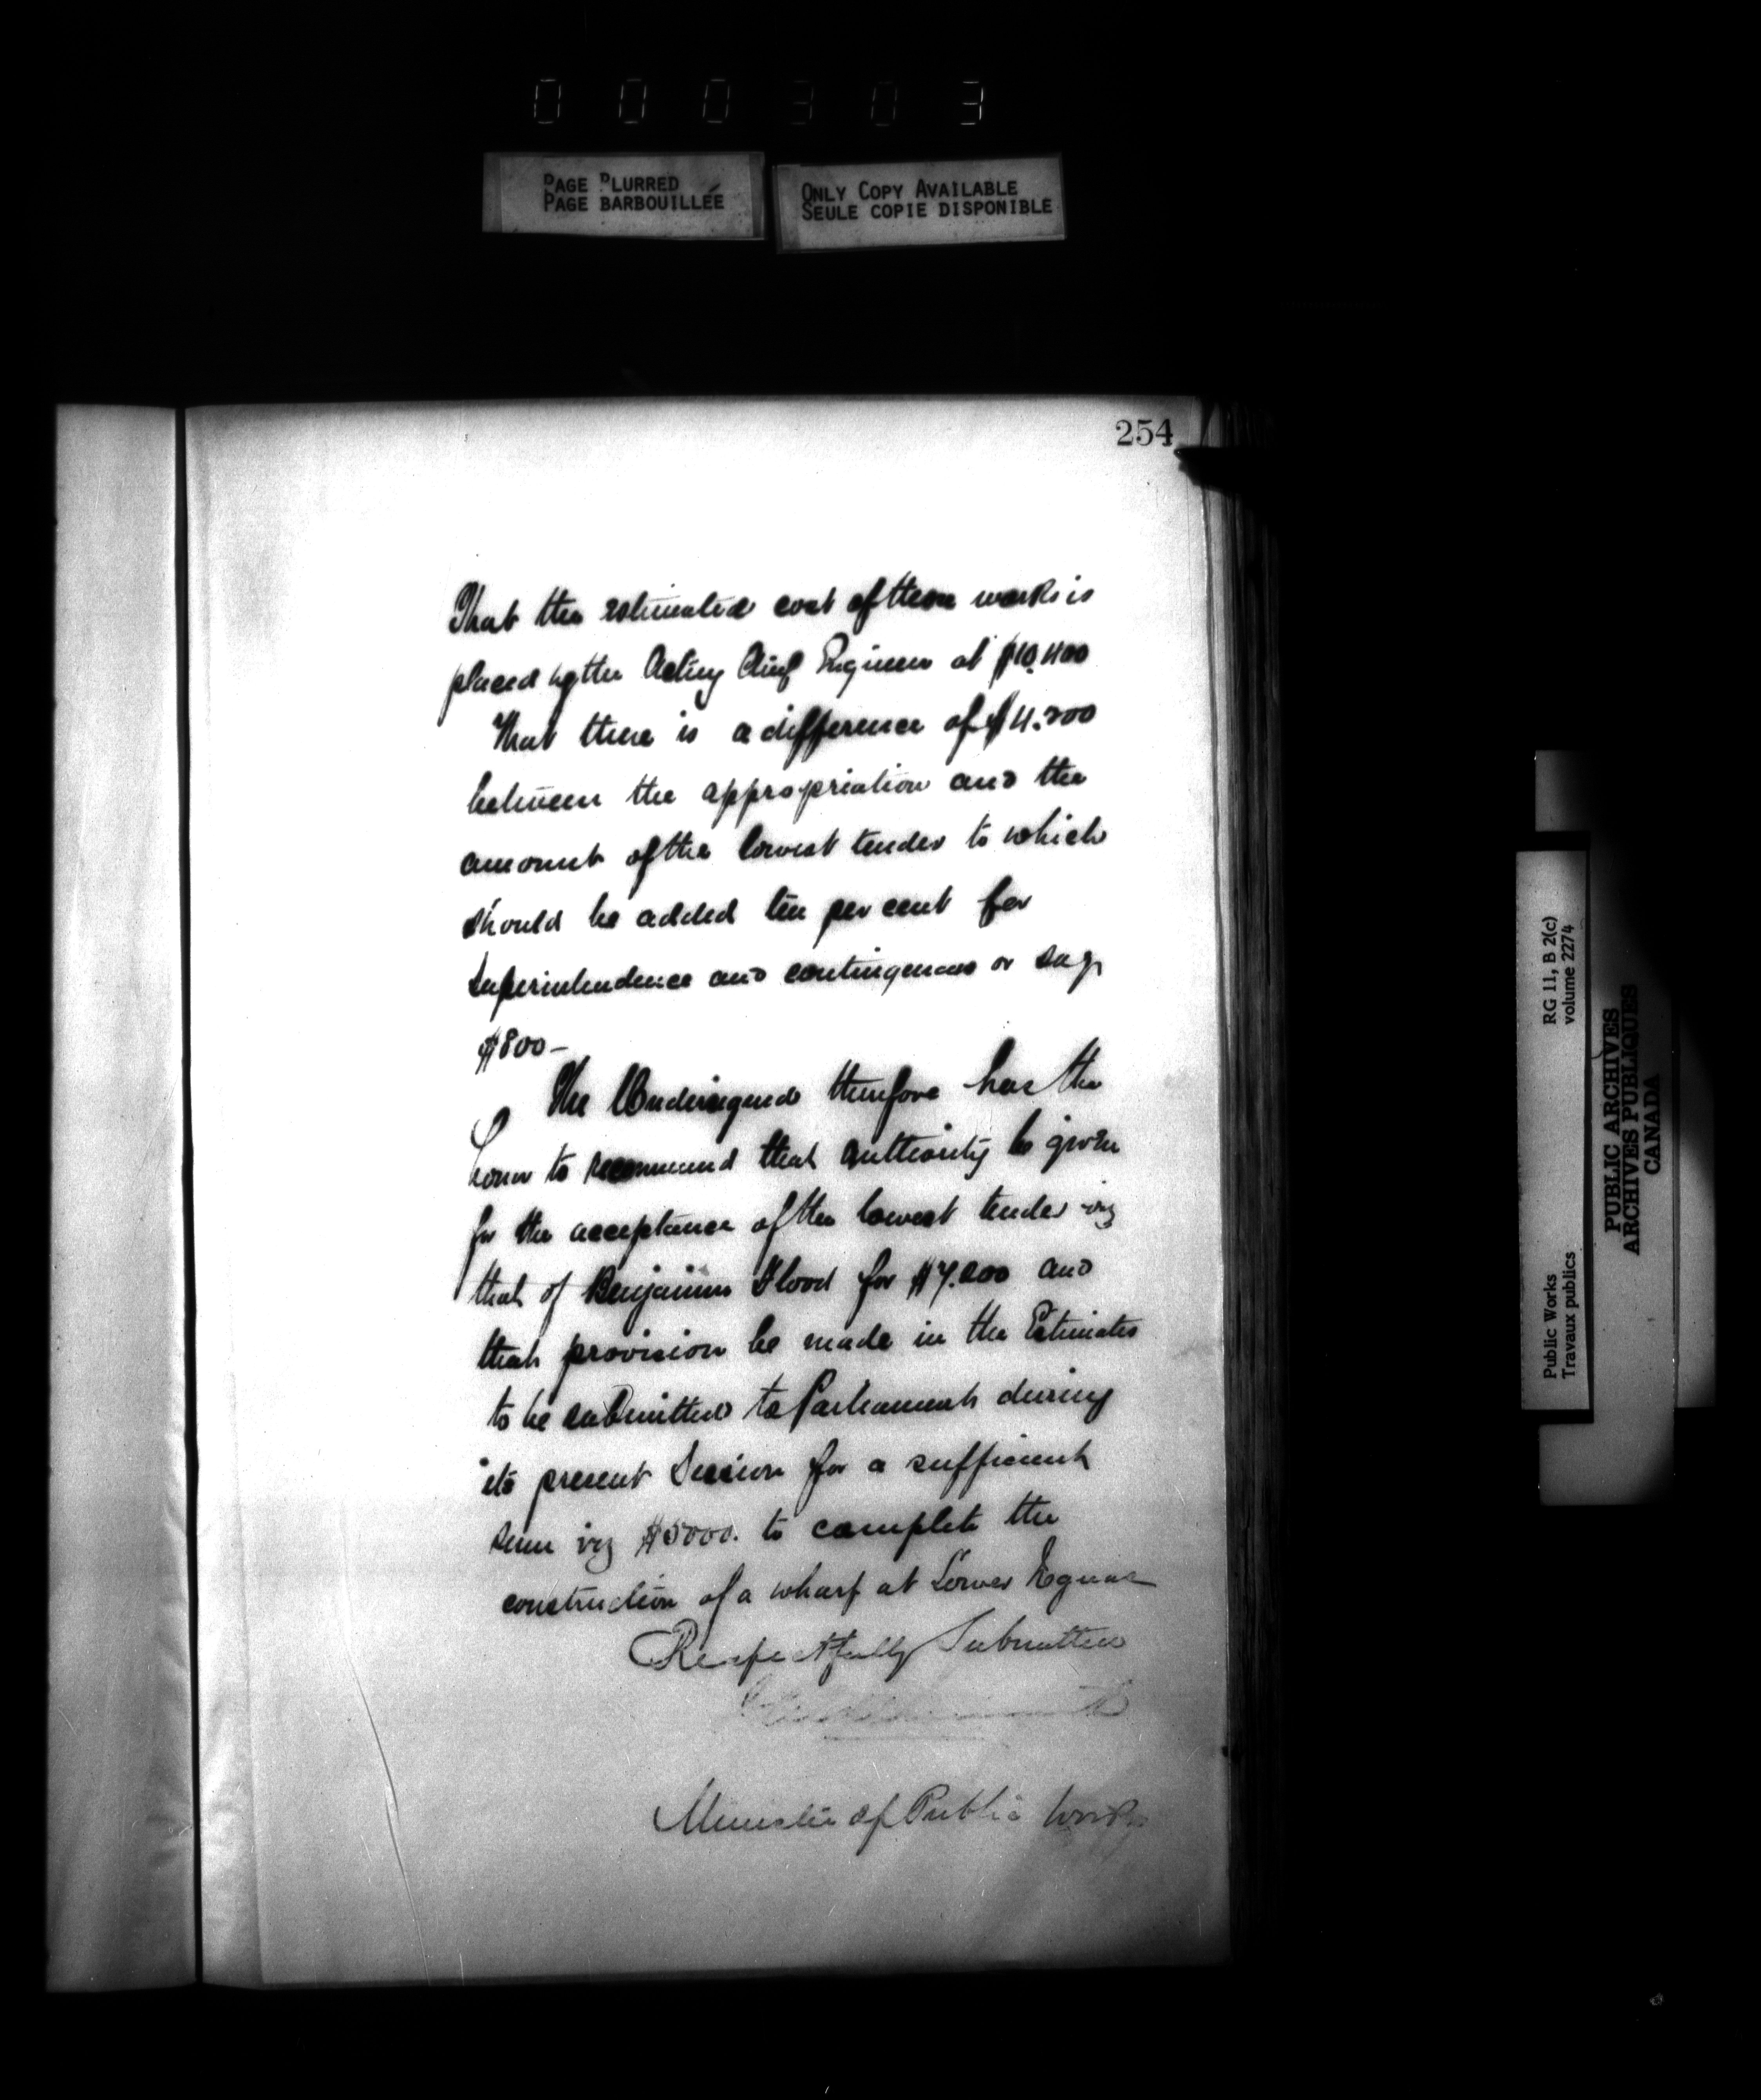 000303
PAGE BLURRED
PAGE BARBOUILLÉE
ONLY COPY AVAILABLE
SEULE COPIE DISPONIBLE
254
That the estimated cost of these works is
placed by the Acting Chief Engineer at $10,400
That there is a difference of $4.200
between the appropriation and the
amount of the lowest tender to which
should be added ten per cent for
Superintendence and contingencies or say
$800 -
The Undersigned therefore has the
honor to recommend that authority be given
for the acceptance of the lowest tender viz
that of Benjamin Flood for $7.200 and
that provision be made in the Estimates
to be submitted to Parliament during
its present Session for a sufficient
sum viz $5000. to complete the
construction of a wharf at Lower
Respectfully Submitted
Minister of Public Works
Public Works
Travaux publics
RG 11, B 2(c)
volume 2274
PUBLIC ARCHIVES
ARCHIVES PUBLIQUES
CANADA